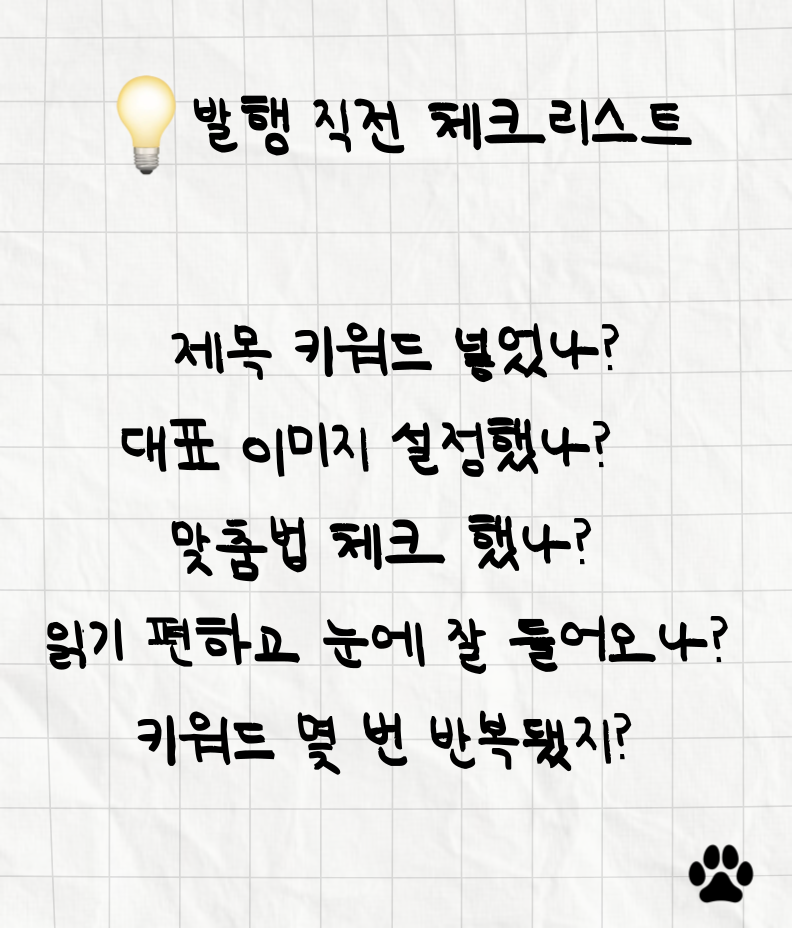 발행 직전 체크리스트
제목 키워드 넣었나?
대표 이미지 설정했나?
맞춤법 체크 했나?
읽기 편하고 눈에 잘 들어오나?
키워드 몇 번 반복됐지?